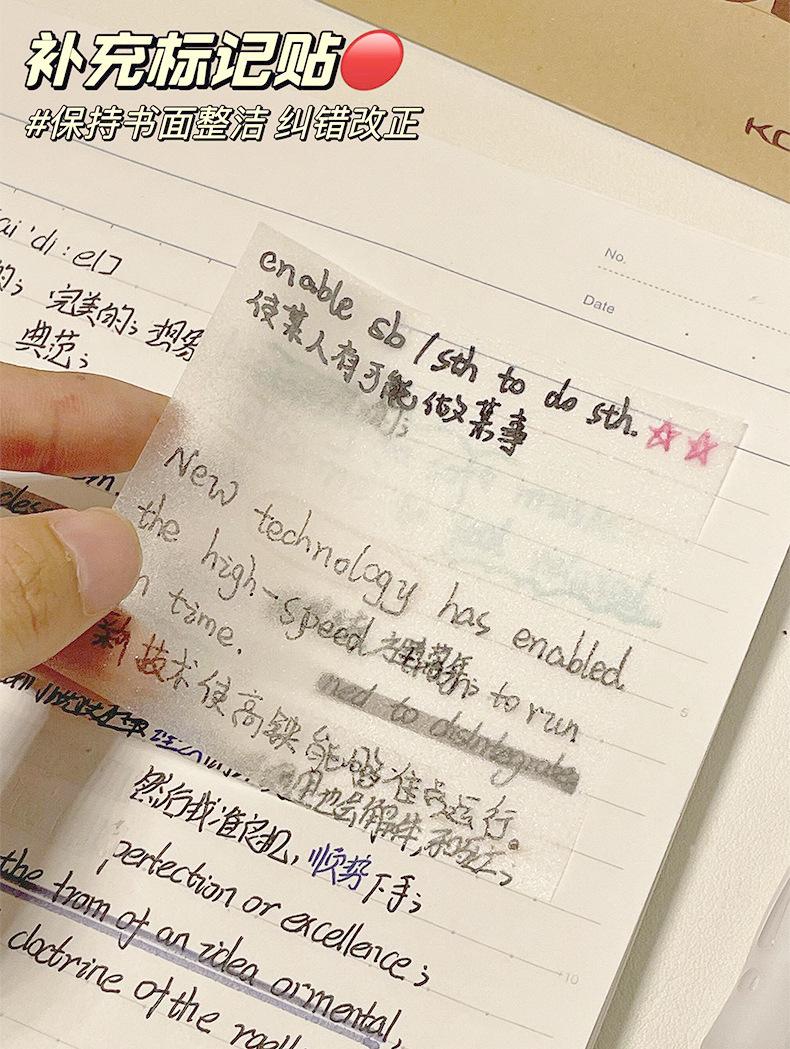 补充标记贴
#保持书面整洁 纠错改正
No.
Date
ai'di:əl]
的; 完美的; 想
典范;
enable sb / sth to do sth. ☆☆
使某人有可能做某事
New technology has enabled
the high-speed to run
n time.
新技术使高铁能够准点运行。
ned to disintegrate
然后找准良机, 顺势下手;
perfection or excellence;
the from of an idea or mental,
doctrine of the
5
10